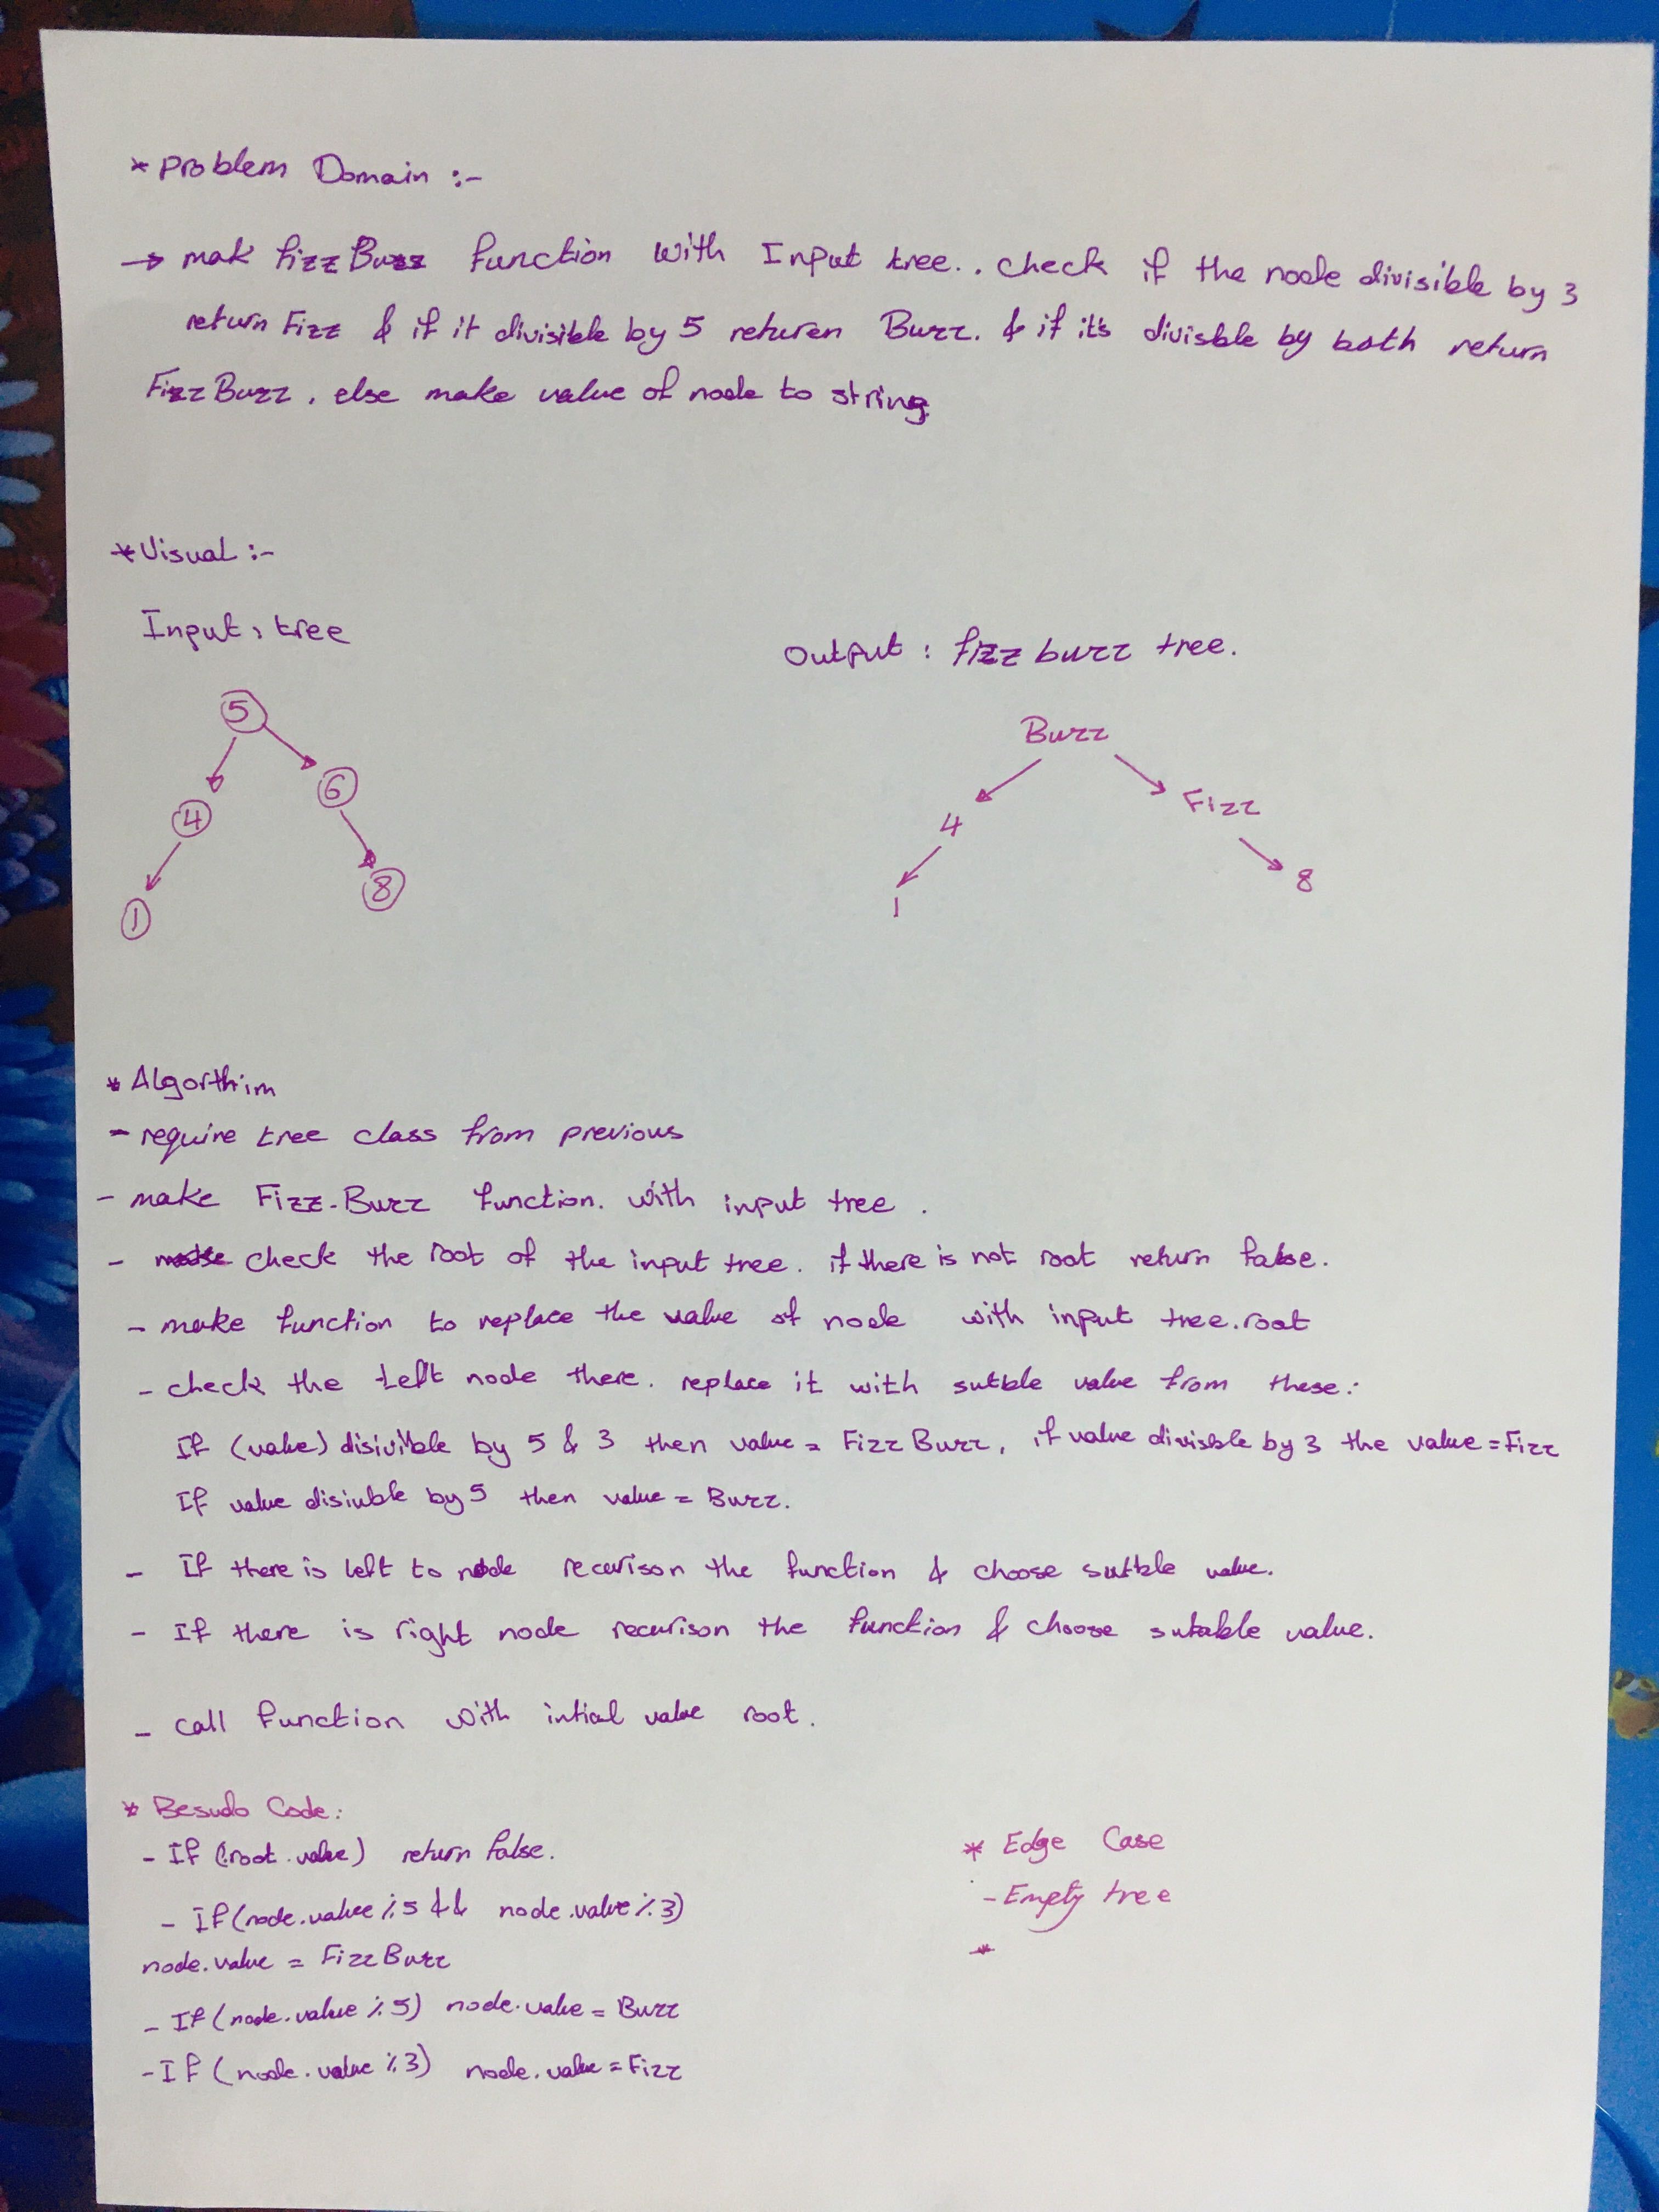 * Problem Domain :-
→ mak FizzBuzz function with Input tree.. check if the node divisible by 3
return Fizz & if it divisible by 5 returen Buzz. & if it's divisble by both return
FizzBuzz, else make value of node to string.
* Visual :-
Input: tree
Output : fizz buzz tree.
5
4
6
1
8
Buzz
4
Fizz
1
8
* Algorthim
- require tree class from previous
- make Fizz-Buzz function. with input tree .
- check the root of the input tree. if there is not root return false.
- make function to replace the value of node with input tree.root
- check the left node there. replace it with sutble value from these:
If (value) disivible by 5 & 3 then value = FizzBuzz, if value divisble by 3 the value = Fizz
If value disiuble by 5 then value = Buzz.
- If there is left to node recurison the function & choose sutble value.
- If there is right node recurison the function & choose sutable value.
- call function with intial value root.
* Besudo Code:
- If (!root.value) return false.
- If(node.value % 5 && node.value % 3)
node.value = FizzBuzz
- If(node.value % 5) node.value = Buzz
- If (node.value % 3) node.value = Fizz
* Edge Case
- Empty tree
*